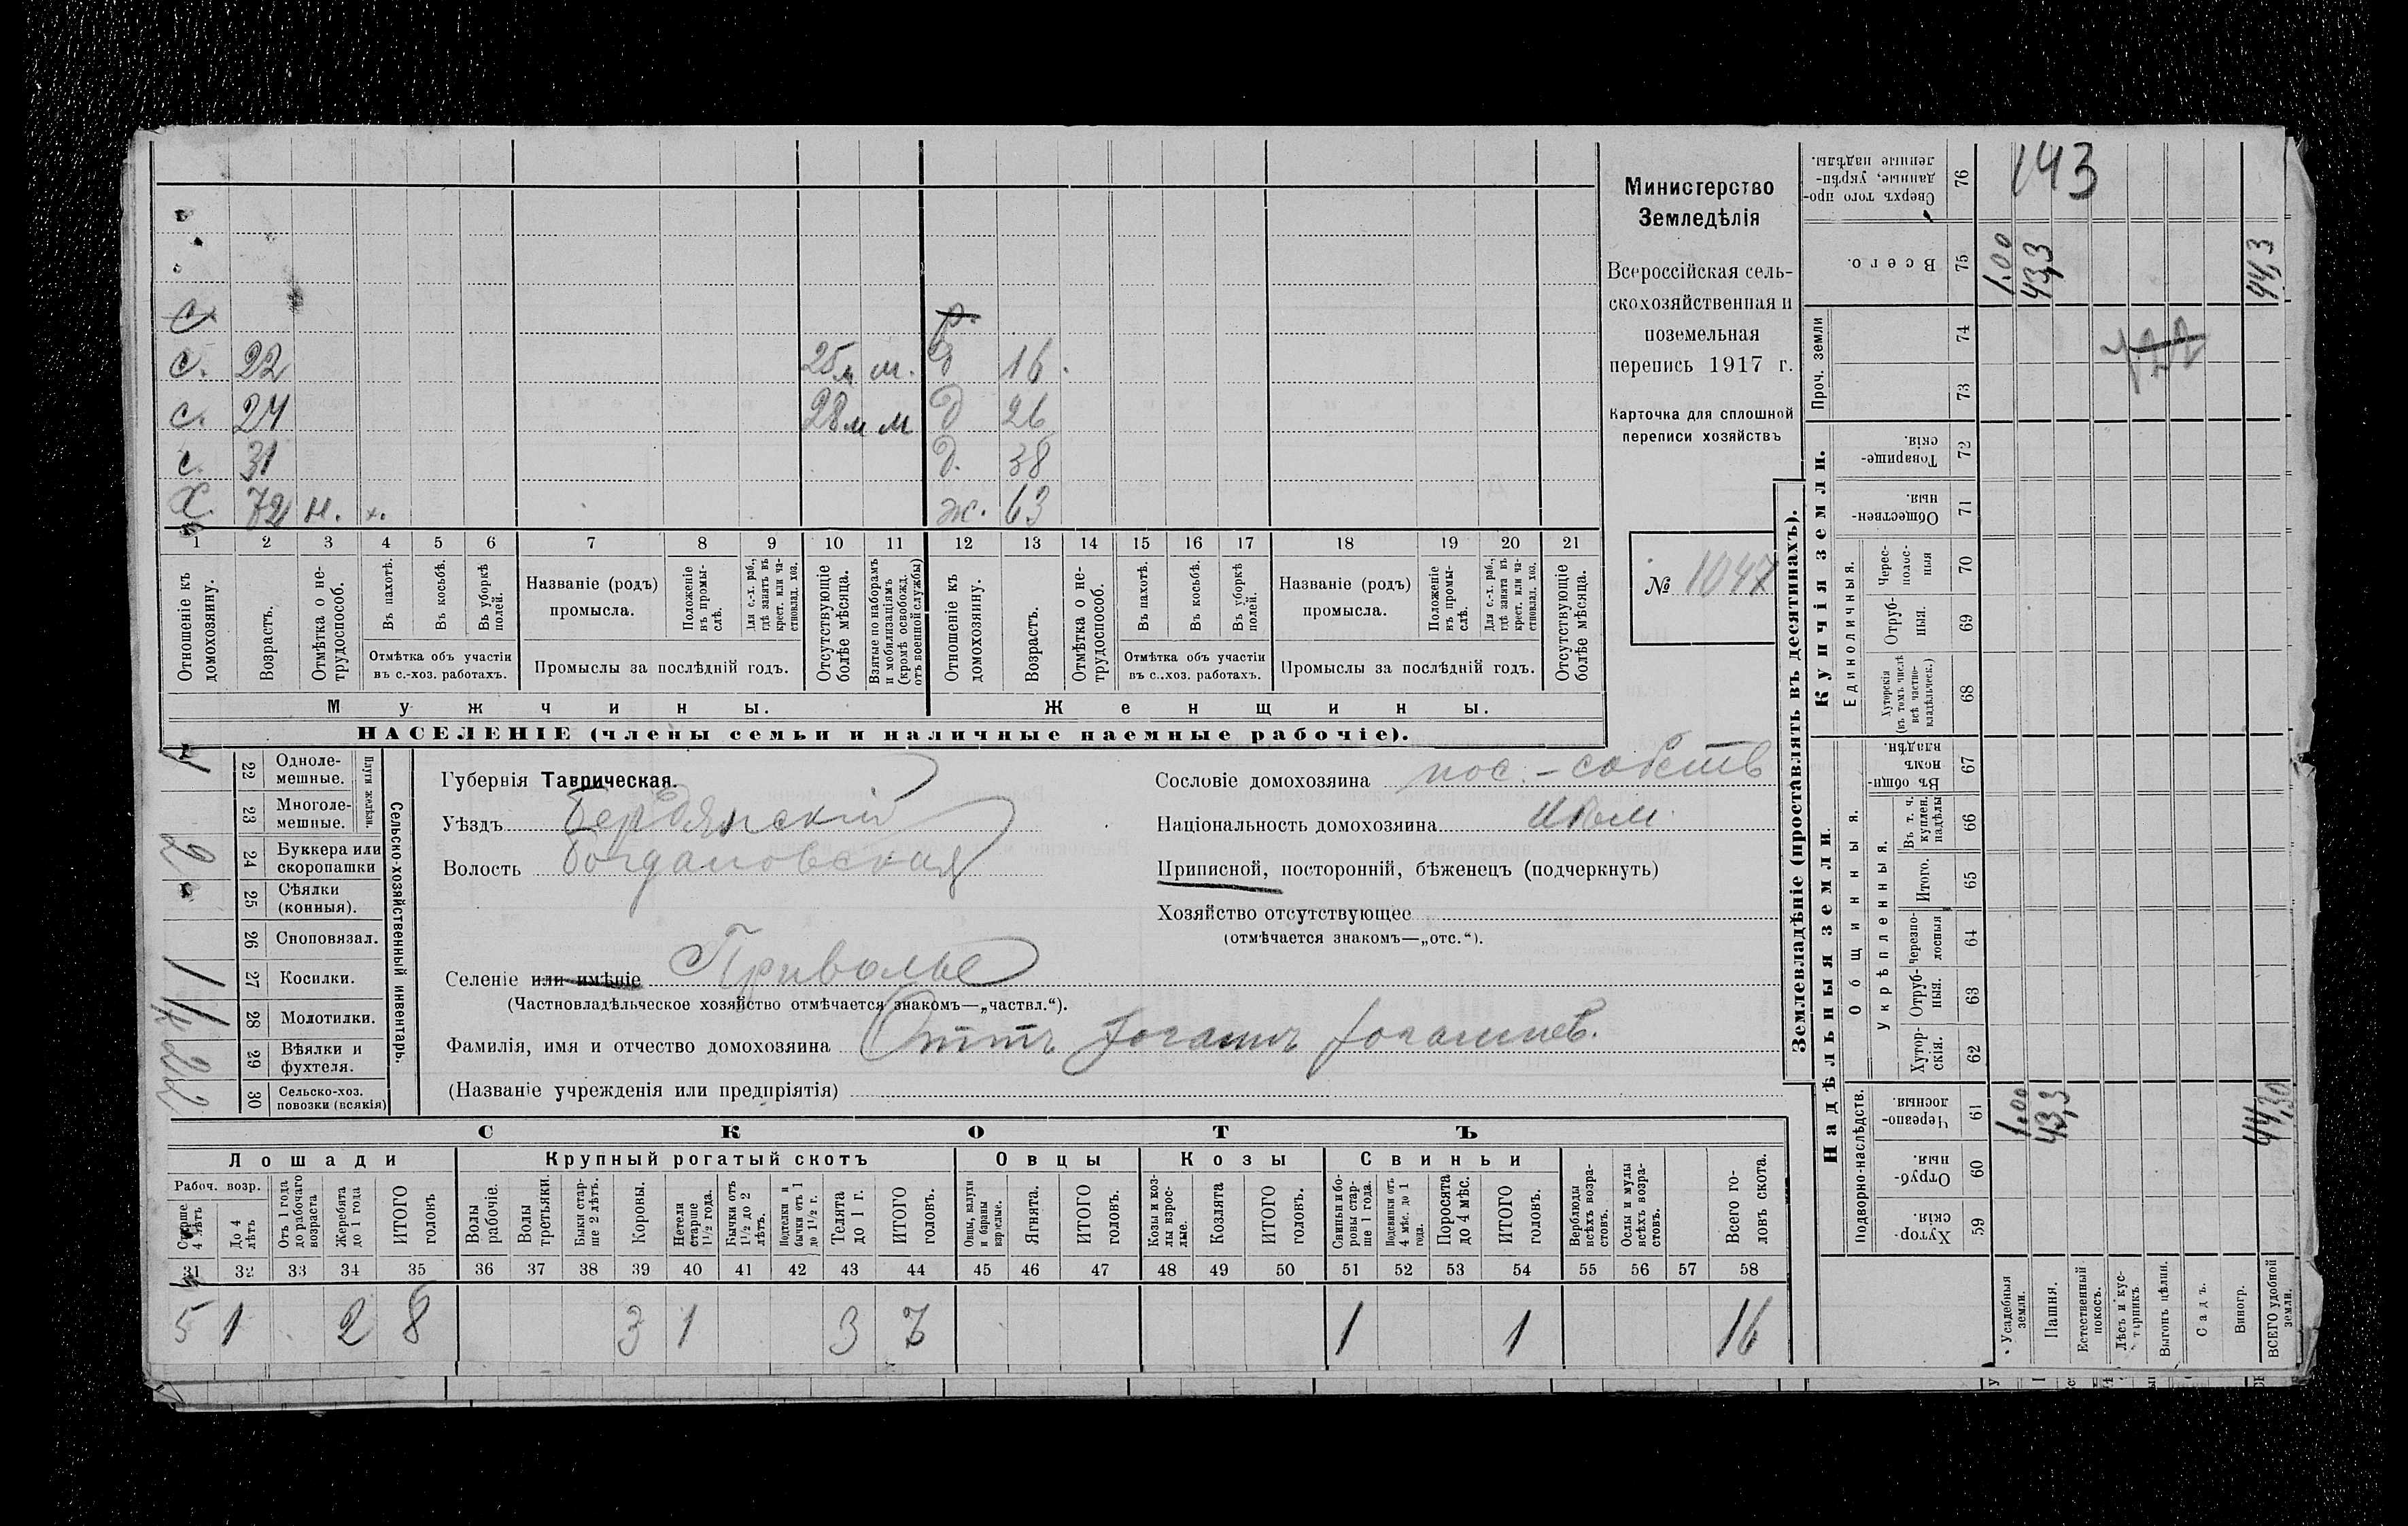 с.
р.
с. 22 25 м м. д 16.
с. 24 28 м м д 26
с. 31 д. 38
Х. 72 н. х. ж. 63
1 2 3 4 5 6 7 8 9 10 11 12 13 14 15 16 17 18 19 20 21
Отношеніе къ домохозяину.
Возрастъ.
Отмѣтка о не-трудоспособ.
Въ пахотѣ.
Въ косьбѣ.
Въ уборкѣ полей.
Отмѣтка объ участіи
въ с.-хоз. работахъ.
Названіе (родъ)
промысла.
Положеніе въ промы-слѣ.
Для с.-х. раб., гдѣ занятъ въ крест. или ча-стновлад. хоз.
Промыслы за послѣдній годъ.
Отсутствующіе болѣе мѣсяца.
Взятые по наборамъ и мобилизаціямъ (кромѣ освобожд. отъ военной службы)
Отношеніе къ домохозяину.
Возрастъ.
Отмѣтка о не-трудоспособ.
Въ пахотѣ.
Въ косьбѣ.
Въ уборкѣ полей.
Отмѣтка объ участіи
въ с..хоз. работахъ.
Названіе (родъ)
промысла.
Положеніе въ промы-слѣ.
Для с.-х. раб., гдѣ занята въ крест. или ча-стновлад. хоз.
Промыслы за послѣдній годъ.
Отсутствующіе болѣе мѣсяца.
Мужчины.
Женщины.
НАСЕЛЕНІЕ (члены семьи и наличные наемные рабочіе).
Министерство
Земледѣлія
Всероссійская сель-
скохозяйственная и
поземельная
перепись 1917 г.
Карточка для сплошной
переписи хозяйствъ
№ 1047
22 Одноле-мешные.
23 Многоле-мешные.
Плуги желѣзн.
2 24 Буккера или скоропашки
25 Сѣялки (конныя).
26 Сноповязал.
1 27 Косилки.
28 Молотилки.
29 Вѣялки и фухтеля.
30 Сельско-хоз. повозки (всякія)
Сельско-хозяйственный инвентарь.
Губернія Таврическая.
Уѣздъ Бердянскій
Волость Богдановская
Селеніе или имѣніе Приволье
(Частновладѣльческое хозяйство отмѣчается знакомъ—„частвл.“).
Фамилія, имя и отчество домохозяина Оттъ Іоганъ Іоганнев.
(Названіе учрежденія или предпріятія)
Сословіе домохозяина пос.-собств
Національность домохозяина нѣм.
Приписной, посторонній, бѣженецъ (подчеркнуть)
Хозяйство отсутствующее
(отмѣчается знакомъ—„отс.“).
СКОТЪ
Лошади Крупный рогатый скотъ Овцы Козы Свиньи
Рабоч. возр.
Старше 4 лѣтъ
До 4 лѣтъ
Отъ 1 года до рабочаго возраста
Жеребята до 1 года
ИТОГО головъ
Волы рабочіе.
Волы третьяки.
Быки стар-ше 2 лѣтъ.
Коровы.
Нетели старше 1½ года.
Бычки отъ 1½ до 2 лѣтъ.
Подтелки и бычки отъ 1 до 1½ г.
Телята до 1 г.
ИТОГО головъ.
Овцы, валухи и бараны взрослые.
Ягнята.
ИТОГО головъ.
Козы и коз-лы взрос-лые.
Козлята
ИТОГО головъ.
Свиньи и бо-ровы стар-ше 1 года.
Подсвинки отъ 4 мѣс. до 1 года.
Поросята до 4 мѣс.
ИТОГО головъ.
Верблюды всѣхъ возра-стовъ.
Ослы и мулы всѣхъ возра-стовъ.
Всего го-ловъ скота.
31 32 33 34 35 36 37 38 39 40 41 42 43 44 45 46 47 48 49 50 51 52 53 54 55 56 57 58
5 1 2 8 3 1 3 7 1 1 16
Землевладѣніе (проставлять въ десятинахъ).
Купчія земли.
Надѣльныя земли.
Сверхъ того про-данные, укрѣп-ленные надѣлы. 76
143
Всего. 75
1.00
43,3
44,3
Проч. земли
74
73
Товарище-скія. 72
Обществен-ныя. 71
Единоличныя.
Черес-полос-ныя 70
Отруб-ныя. 69
Хуторскія (въ томъ числѣ всѣ частно-владѣльческ.) 68
Общинныя.
Въ общин-номъ владѣн. 67
Укрѣпленныя.
Въ т. ч. куплен. надѣлы 66
Итого. 65
Черезпо-лосныя 64
Отруб-ныя. 63
Хутор-скія. 62
Подворно-наслѣдств.
Черезпо-лосныя. 61
1.00
43,3
44,30
Отруб-ныя. 60
Хутор-скія. 59
Усадебныя земли.
Пашня.
Естественный покосъ.
Лѣсъ и кус-тарникъ
Выгонъ цѣлин.
Садъ.
Виногр.
ВСЕГО удобной земли.